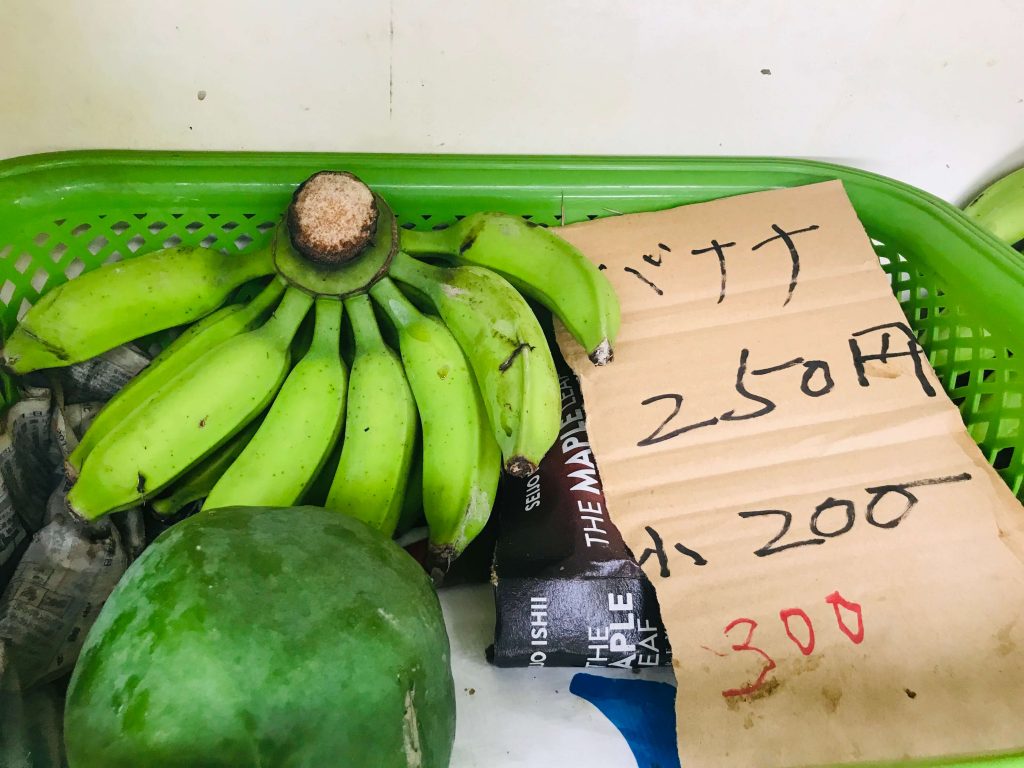 バナナ
250円
小 200
300
SEIJO
THE MAPLE LEAF
JO ISHII
THE
APLE
EAF